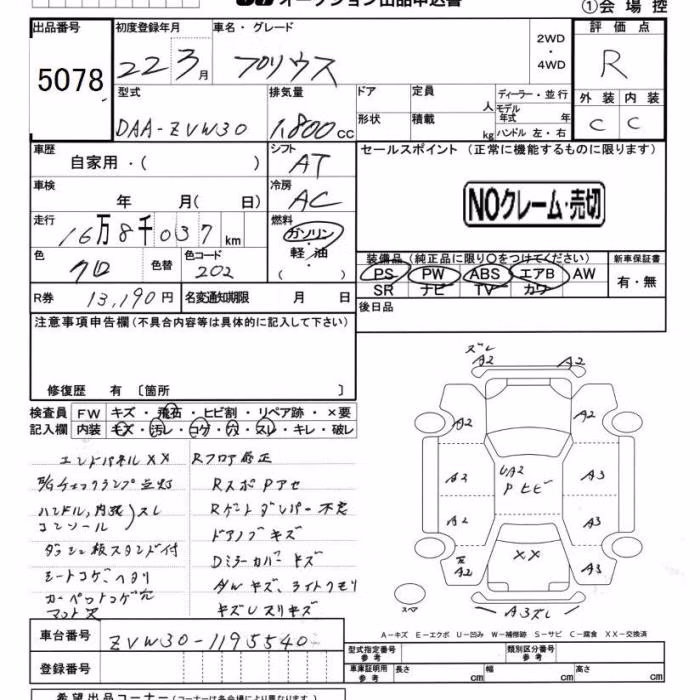 オークション出品申込書
①会場控
出品番号 初度登録年月 車名・グレード 評価点
5078 22 3月 プリウス 2WD・4WD R
型式 排気量 ドア 定員 人 ディーラー・並行 外装 内装
DAA-ZVW30 1,800cc 形状 積載 kg モデル年式 年 ハンドル 左・右 C C
車歴 シフト セールスポイント (正常に機能するものに限ります)
自家用・( ) AT
車検 冷房
年 月( 日) AC NOクレーム・売切
走行 燃料
16万8千037km ガソリン・軽油・( )
色 色替 色コード 装備品(純正品に限り○をつけてください) 新車保証書
クロ 202 PS PW ABS エアB AW 有・無
SR ナビ TV カワ
R券 13,190円 名変通知期限 月 日 後日品
注意事項申告欄(不具合内容等は具体的に記入して下さい)
修復歴 有 〔箇所 〕
検査員 FW キズ・飛石・ヒビ割・リペア跡・×要
記入欄 内装 キズ・汚レ・コゲ・穴・スレ・キレ・破レ
エンドパネルXX Rフロア修正
E/Gチェックランプ点灯 RスポPアセ
ハンドル,内張 コンソール)スレ Rゲートダンパー不良
ダッシュ板スタンド付 ドアノブキズ
シートコゲ、ヘタリ Dミラーカバーキズ
カーペットコゲ穴 AWキズ、ライトクモリ
マット欠 キズUスリキズ
ズレ
A2 A2
A2 A2
A2 UA2 A3
Pヒビ
A2 A3
A2 XX A3
スペア A3ズレ
A-キズ E-エクボ U-凹み W-補修跡 S-サビ C-腐食 XX-交換済
車台番号 ZVW30-1195540
型式指定番号 参考 類別区分番号 参考
登録番号 車庫証明用 参考 長さ cm 幅 cm 高さ cm
希望出品コーナー(コーナーは各会場により異なります)